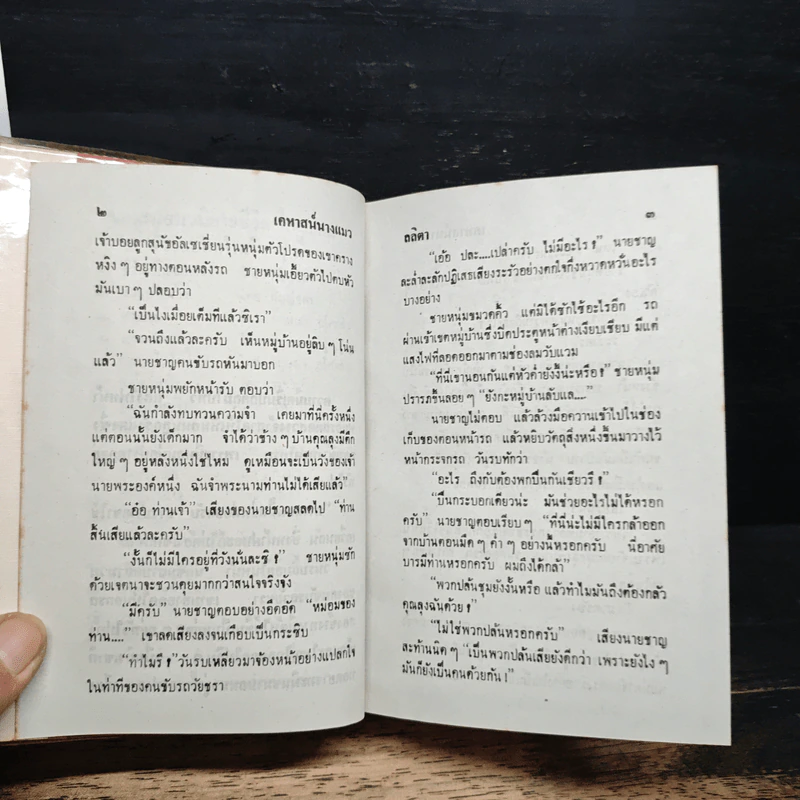 ๒
เคหาสน์นางแมว
เจ้าบอยลูกสุนัขอัลเซเชี่ยนรุ่นหนุ่มตัวโปรดของเขาคราง
หงิง ๆ อยู่ทางตอนหลังรถ ชายหนุ่มเอี้ยวตัวไปตบหัว
มันเบา ๆ ปลอบว่า
“เป็นไงเมื่อยเต็มทีแล้วซิเรา”
“จวนถึงแล้วละครับ เห็นหมู่บ้านอยู่ลิบ ๆ โน่น
แล้ว” นายชาญคนขับรถหันมาบอก
ชายหนุ่มพยักหน้ารับ ตอบว่า
“ฉันกำลังทบทวนความจำ เคยมาที่นี่ครั้งหนึ่ง
แต่ตอนนั้นยังเด็กมาก จำได้ว่าข้าง ๆ บ้านคุณลุงมีตึก
ใหญ่ ๆ อยู่หลังหนึ่งใช่ไหม ดูเหมือนจะเป็นวังของเจ้า
นายพระองค์หนึ่ง ฉันจำพระนามท่านไม่ได้เสียแล้ว”
“อ๋อ ท่านเจ้า” เสียงของนายชาญสลดไป “ท่าน
สิ้นเสียแล้วละครับ”
“งั้นก็ไม่มีใครอยู่ที่วังนั่นละซิ ?” ชายหนุ่มซัก
ด้วยเจตนาจะชวนคุยมากกว่าสนใจจริงจัง
“มีครับ” นายชาญตอบอย่างอึดอัด “หม่อมของ
ท่าน....” เขาลดเสียงลงจนเกือบเป็นกระซิบ
“ทำไมรึ ?” วันรบเหลียวมาจ้องหน้าอย่างแปลกใจ
ในท่าทีของคนขับรถวัยชรา
ลลิตา
๓
“เอ้อ ปละ....เปล่าครับ ไม่มีอะไร ?” นายชาญ
ละล่ำละลักปฏิเสธเสียงระรัวอย่างตกใจกึ่งหวาดหวั่นอะไร
บางอย่าง
ชายหนุ่มขมวดคิ้ว แต่มิได้ซักไซ้อะไรอีก รถ
ผ่านเข้าเขตหมู่บ้านซึ่งปิดประตูหน้าต่างเงียบเชียบ มีแต่
แสงไฟที่ลอดออกมาตามช่องลมวับแวม
“ที่นี่เขานอนกันแต่หัวค่ำยังงี้น่ะหรือ ?” ชายหนุ่ม
ปรารภขึ้นลอย ๆ “ยังกะหมู่บ้านลับแล....”
นายชาญไม่ตอบ แล้วล้วงมือควานเข้าไปในช่อง
เก็บของตอนหน้ารถ แล้วหยิบวัตถุสิ่งหนึ่งขึ้นมาวางไว้
หน้ากระจกรถ วันรบทักว่า
“อะไร ถึงกับต้องพกปืนกันเชียวรึ ?”
“ปืนกระบอกเดียวน่ะ มันช่วยอะไรไม่ได้หรอก
ครับ” นายชาญตอบเรียบ ๆ “ที่นี่น่ะไม่มีใครกล้าออก
จากบ้านตอนมืด ๆ ค่ำ ๆ อย่างนี้หรอกครับ นี่อาศัย
บารมีท่านหรอกครับ ผมถึงได้กล้า”
“พวกปล้นชุมยังงั้นหรือ แล้วทำไมมันถึงต้องกลัว
คุณลุงฉันด้วย ?”
“ไม่ใช่พวกปล้นหรอกครับ” เสียงนายชาญ
สะท้านนิด ๆ “เป็นพวกปล้นเสียยังดีกว่า เพราะยังไง ๆ
มันก็ยังเป็นคนด้วยกัน !”